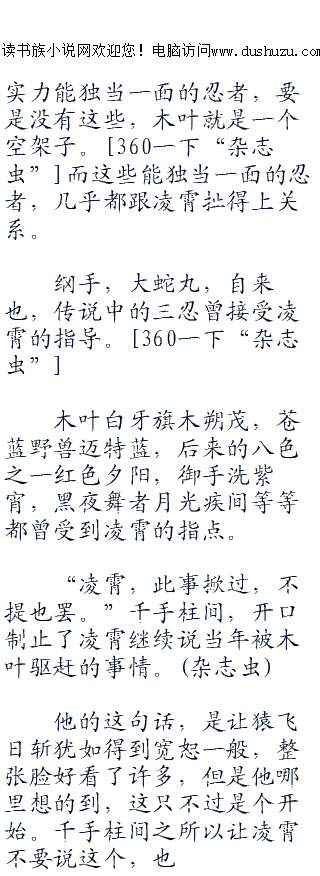 读书族小说网欢迎您！电脑访问www.dushuzu.com
实力能独当一面的忍者，要
是没有这些，木叶就是一个
空架子。[360一下“杂志
虫”]而这些能独当一面的忍
者，几乎都跟凌霄扯得上关
系。
纲手，大蛇丸，自来
也，传说中的三忍曾接受凌
霄的指导。[360一下“杂志
虫”]
木叶白牙旗木朔茂，苍
蓝野兽迈特蓝，后来的八色
之一红色夕阳，御手洗紫
宵，黑夜舞者月光疾间等等
都曾受到凌霄的指点。
“凌霄，此事掀过，不
提也罢。”千手柱间，开口
制止了凌霄继续说当年被木
叶驱赶的事情。(杂志虫)
他的这句话，是让猿飞
日斩犹如得到宽恕一般，整
张脸好看了许多，但是他哪
里想的到，这只不过是个开
始。千手柱间之所以让凌霄
不要说这个，也